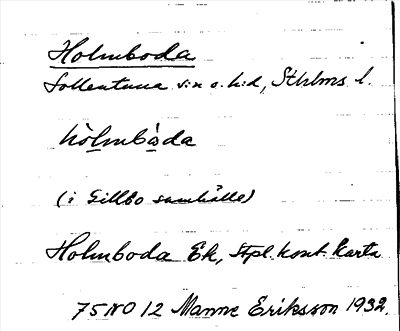 Holmboda
Sollentuna sn o. hd, Sthlms l.
hòlmbòda
(i Gillbo samhälle)
Holmboda Ek, Stpl. kont. karta
75 NO 12 Manne Eriksson 1932.